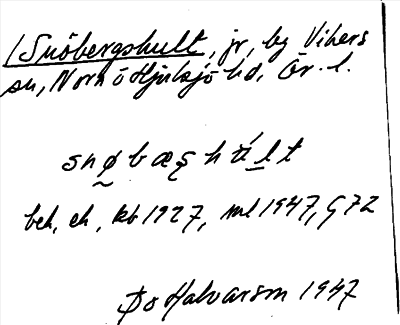 Snöbergshult, jr, by Vikers
sn, Nora o Hjulsjö hd, Ör. l.
snøbæșhúlt
beb, ek, kb 1927, ml 1947, G 72
Do Halvarson 1947